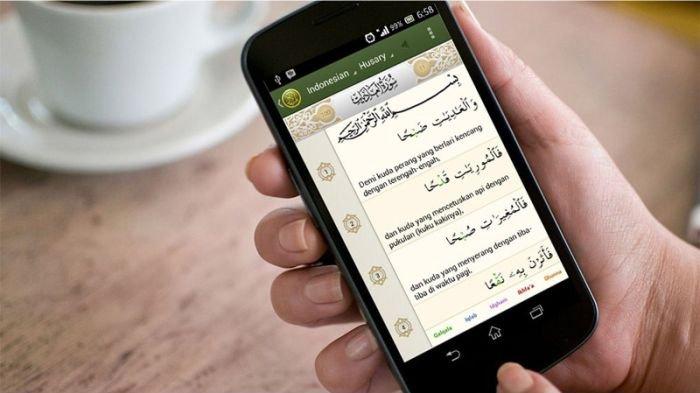 99% 6:58
Indonesian Husary
سورة العاديات
بسم الله الرحمن الرحيم
وَالْعَادِيَاتِ ضَبْحًا
Demi kuda perang yang berlari kencang
dengan terengah-engah.
1
فَالْمُورِيَاتِ قَدْحًا
dan kuda yang mencetuskan api dengan
pukulan (kuku kakinya).
2
فَالْمُغِيرَاتِ صُبْحًا
dan kuda yang menyerang dengan tiba-
tiba di waktu pagi.
3
فَأَثَرْنَ بِهِ نَقْعًا
4
Qalqala Iqlab Idgham Ikhfa'a Ghunna